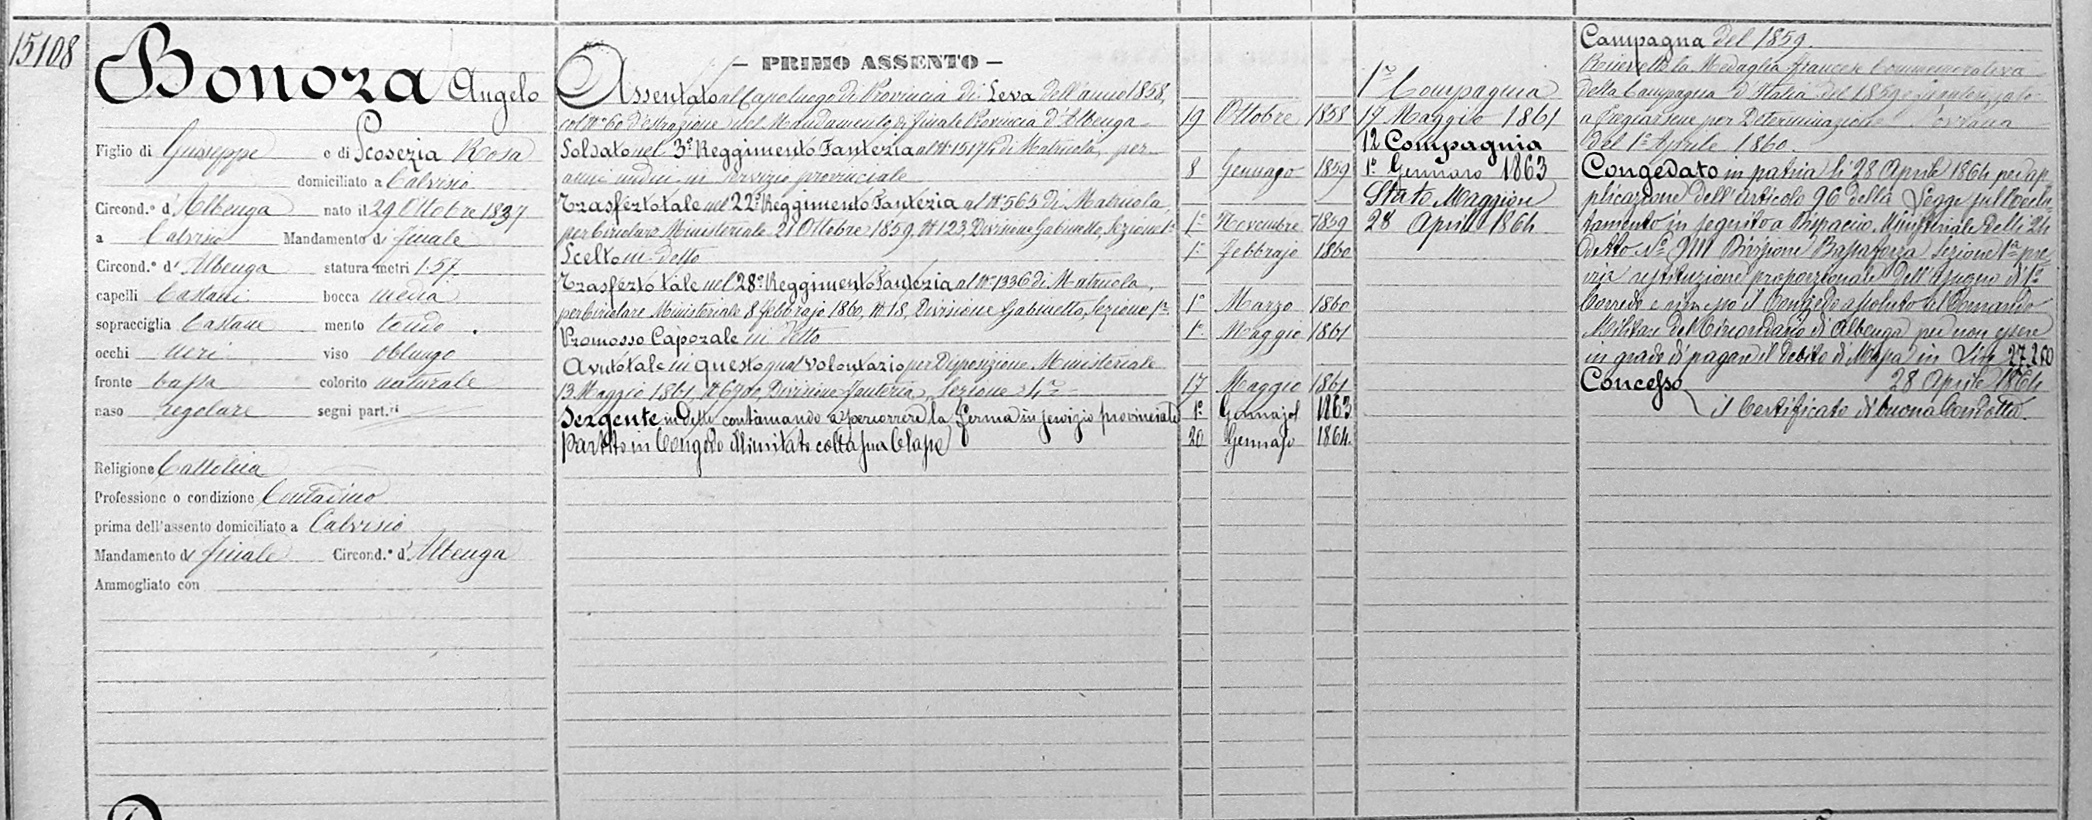 15108
Bonora Angelo
Figlio di Giuseppe e di Scoseria Rosa
domiciliato a Calvisio
Circond.º d' Albenga nato il 29 Ottobre 1837
a Calvisio Mandamento di Finale
Circond.º d' Albenga statura metri 1.57.
capelli Castani bocca media
sopracciglia Castane mento tondo
occhi neri viso oblungo
fronte bassa colorito naturale
naso regolare segni part.ri
Religione Cattolica
Professione o condizione Contadino
prima dell'assento domiciliato a Calvisio
Mandamento di Finale Circond.º d' Albenga
Ammogliato con
— PRIMO ASSENTO —
Assentato al Capoluogo di Provincia di Leva dell'anno 1858,
col Nº 60 d'estrazione del Mandamento di Finale Provincia d'Albenga 19 Ottobre 1858
Soldato nel 3º Reggimento Fanteria al Nº 15174 di Matricola, per
anni undici in servizio provinciale 8 Gennajo 1859
Trasferto tale nel 22º Reggimento Fanteria al Nº 565 di Matricola,
per Circolare Ministeriale 21 Ottobre 1859, Nº 123, Divisione Gabinetto, Sezione 1ª 1º Novembre 1859
Scelto in detto 1º Febbrajo 1860
Trasferto tale nel 28º Reggimento Fanteria al Nº 1336 di Matricola,
per Circolare Ministeriale 8 Febbrajo 1860, Nº 18, Divisione Gabinetto, Sezione 1ª 1º Marzo 1860
Promosso Caporale in detto 1º Maggio 1861
Avuto tale in questo qual volontario per Disposizione Ministeriale
13 Maggio 1861, Nº 6700, Divisione Fanteria, Sezione 4ª 17 Maggio 1861
Sergente in detto continuando a percorrere la ferma in servizio provinciale 1º Gennajo 1863
Partito in Congedo illimitato colla sua Classe 20 Gennajo 1864
1ª Compagnia
17 Maggio 1861
12 Compagnia
1º Gennaro 1863
Stato Maggiore
28 Aprile 1864
Campagna del 1859.
Ricevette la Medaglia francese Commemorativa
della Campagna d'Italia del 1859 e fu autorizzato
a fregiarsene per Determinazione Sovrana
del 1º Aprile 1860.
Congedato in patria li 28 Aprile 1864 per ap-
plicazione dell'articolo 96 della Legge sul Reclu-
tamento in seguito a Dispaccio Ministeriale delli 24
detto Nº VIII Divisione Bassa forza Sezione 1ª pre-
via restituzione proporzionale dell'assegno di 1º
Corredo e rimesso il Congedo assoluto al Comando
Militare del Circondario di Albenga per non essere
in grado di pagare il debito di Massa in Lire 27.260
Concesso 28 Aprile 1864
il Certificato di buona Condotta.